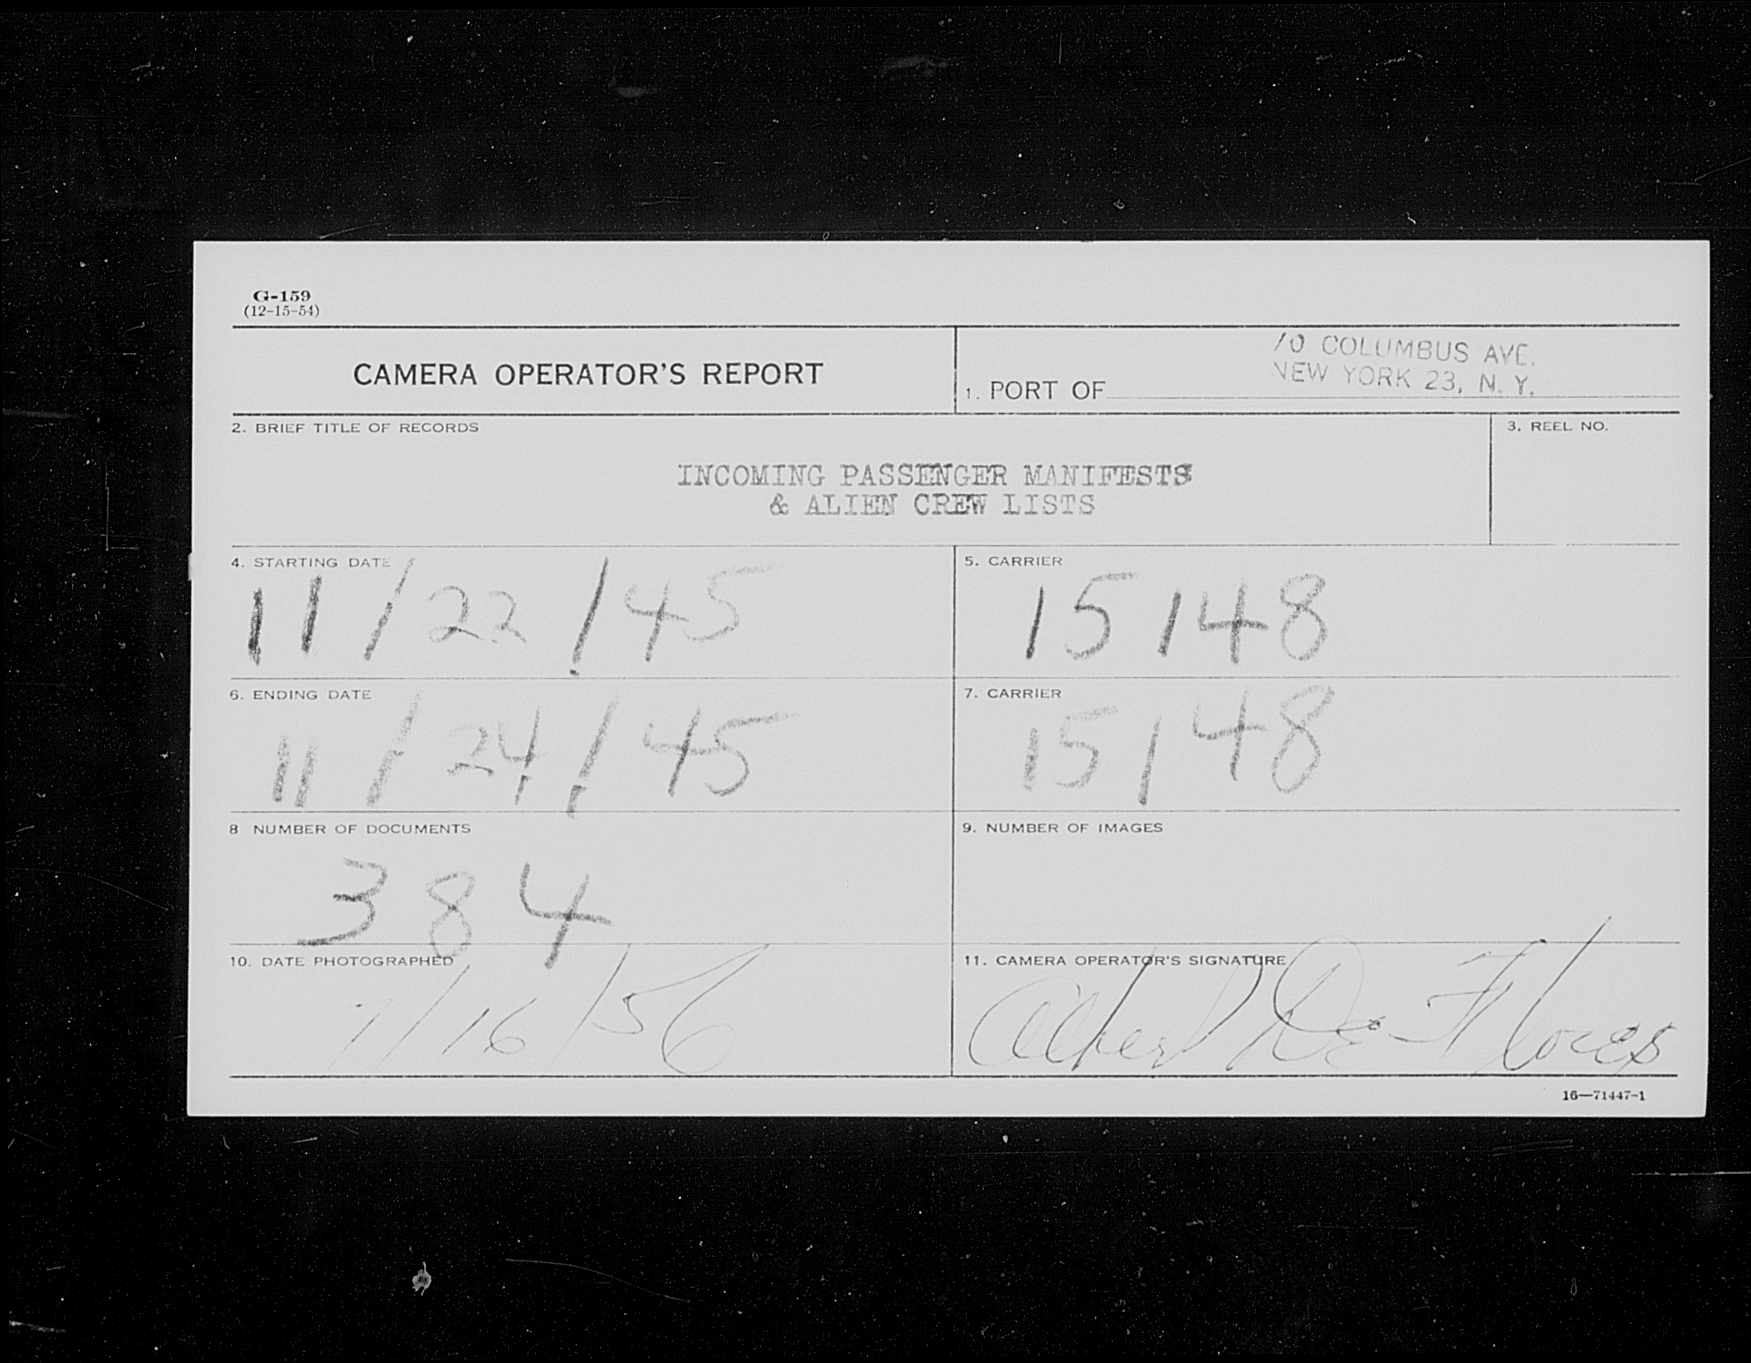 G-159
(12-15-54)
CAMERA OPERATOR'S REPORT
1. PORT OF
70 COLUMBUS AVE.
NEW YORK 23, N. Y.
2. BRIEF TITLE OF RECORDS
3. REEL NO.
INCOMING PASSENGER MANIFESTS
& ALIEN CREW LISTS
4. STARTING DATE
5. CARRIER
11/22/45
15148
6. ENDING DATE
7. CARRIER
11/24/45
15148
8 NUMBER OF DOCUMENTS
9. NUMBER OF IMAGES
384
10. DATE PHOTOGRAPHED
11. CAMERA OPERATOR'S SIGNATURE
7/16/56
Albert De Flores
16—71447-1